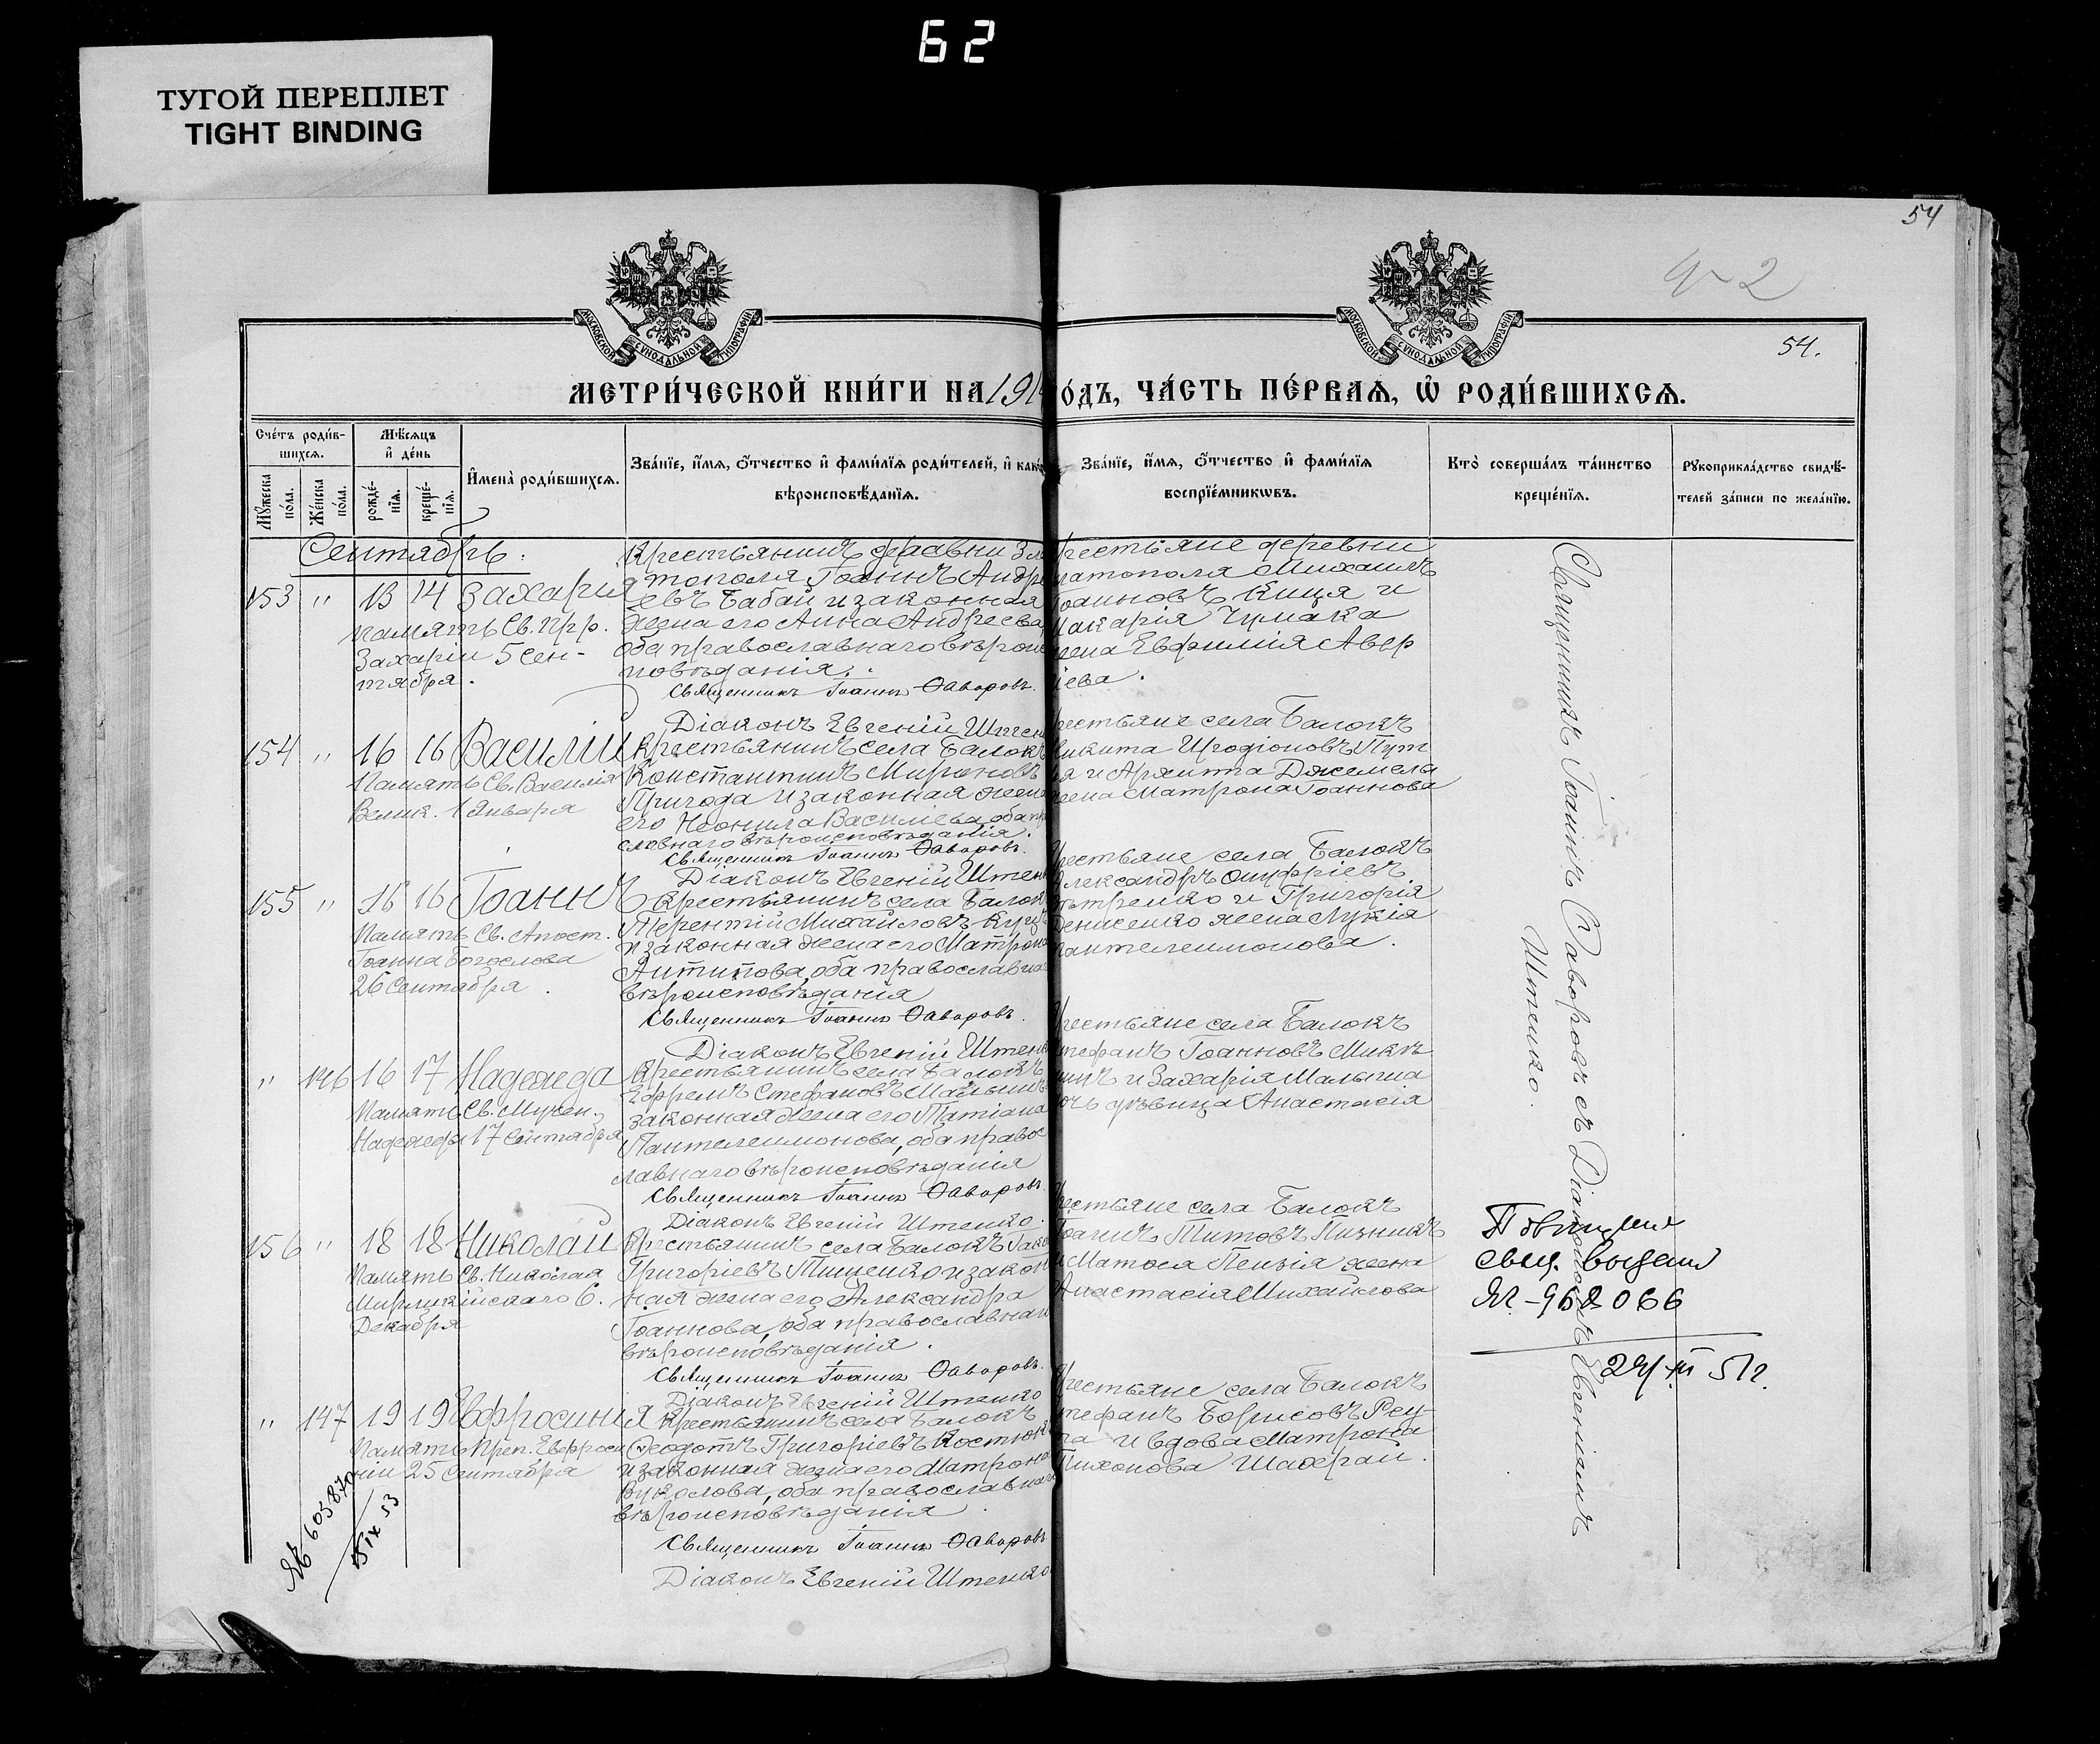 62
ТУГОЙ ПЕРЕПЛЕТ
TIGHT BINDING
54
54.
МОСКОВСКОЙ СѴНОДАЛЬНОЙ ТИПОГРАФІИ
МОСКОВСКОЙ СѴНОДАЛЬНОЙ ТИПОГРАФІИ
МЕТРИ́ЧЕСКОЙ КНИ́ГИ НА 191 О́ДЪ, ЧА́СТЬ ПЕ́РВАѦ, Ѡ РОДИ́ВШИХСѦ.
Сче́тъ роди́в-
шихсѧ.
Мꙋ́жеска по́ла.
Же́нска по́ла.
Мѣ́сѧцъ
и́ де́нь
рожде́-
нїѧ.
креще́-
нїѧ.
И҆мена̀ роди́вшихсѧ.
Зва́нїе, и҆́мѧ, ѻ҆́тчество и҆ фами́лїѧ роди́телей, и҆ како́
вѣроисповѣ́данїѧ.
Зва́нїе, и҆́мѧ, ѻ҆́тчество и҆ фами́лїѧ
воспрїе́мникѡвъ.
Кто̀ соверша́лъ та́инство
креще́нїѧ.
Рꙋкоприкла́дство свидѣ́-
телей за́писи по жела́нїю.
Сентябрь.
153 " 13 14 Захарія
Память Св. Прр.
Захаріи 5 Сен-
тября.
Крестьянинъ деревни Зла
тополя Іоаннъ Андре
евъ Бабай и законная
жена его Анна Андреева,
оба православнаго вѣроис
повѣданія.
Священникъ Іоаннъ Ѳаворовъ.
Діаконъ Евгеній Штен
рестьяне деревни
латополя Михаилъ
Іоанновъ Куця и
Макарія Чумака
жена Евфимія Авер
кіева.
154 " 16 16 Василій
Память Св. Василія
Велик. 1 Января
Крестьянинъ села Балокъ
Константинъ Мироновъ
Пригода и законная жена
его Неонила Василіева, оба пр
славнаго вѣроисповѣданія.
Священникъ Іоаннъ Ѳаворовъ.
Діаконъ Евгеній Штен
рестьяне села Балокъ
Никита Иродіоновъ Пут
я и Архиппа Джемела
жена Матрона Іоаннова
155 " 16 16 Іоаннъ
Память Св. Апост.
Іоанна Богослова
26 Сентября.
Крестьянинъ села Балок
Терентій Михайловъ Куц
и законная жена его Матрона
Антипова, оба православна
вѣроисповѣданія
Священникъ Іоаннъ Ѳаворовъ.
Діаконъ Евгеній Штен
Крестьяне села Балокъ
Александръ Онуфріевъ
Петренко и Григорія
Денисенко жена Лукія
Пантелеимонова.
" 146 16 17 Надежда
Память Св. Мучен.
Надежды 17 Сентября
Крестьянинъ села Балокъ
Ефремъ Стефановъ Малышъ
законная жена его Татіана
Пантелеимонова, оба правос
лавнаго вѣроисповѣданія
Священникъ Іоаннъ Ѳаворовъ.
Діаконъ Евгеній Штенко.
Крестьяне села Балокъ
Стефанъ Іоанновъ
и Захарія Малыша
дочь дѣвица Анастасія
156 " 18 18 Николай
Память Св. Николая
Мирликійскаго 6.
Декабря
Крестьянинъ села Балокъ Іак
Григоріевъ Тищенко и закон
ная жена его Александра
Іоаннова, оба православнаго
вѣроисповѣданія.
Священникъ Іоаннъ Ѳаворовъ.
Діаконъ Евгеній Штенко
рестьяне села Балокъ
Іоаннъ Титовъ
и Матѳея жена
Анастасія Михайлова
" 147 19 19 Евфросинія
Память Преп. Евфроси
ніи 25 Сентября
Крестьянинъ села Балокъ
Ѳеодотъ Григоріевъ Костюк
и законная жена его Матрона
Вуколова, оба православнаго
вѣроисповѣданія.
Священникъ Іоаннъ Ѳаворовъ
Діаконъ Евгеній Штенко
рестьяне села Балокъ
Стефанъ Борисовъ Реу-
та и вдова Матрона
Тихонова Шахрай.
Священникъ Іоаннъ Ѳаворовъ съ Діакономъ Евгеніемъ
Штенко.
свид. выдано
968066